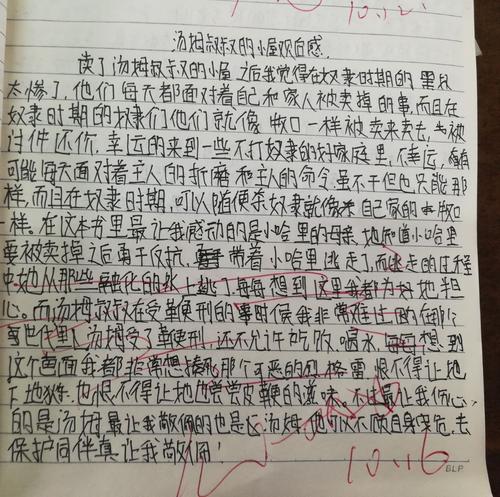 10.12.
汤姆叔叔的小屋观后感.
读了汤姆叔叔的小屋之后我觉得在奴隶时期的黑奴
太惨了,他们每天都面对着自己和家人被卖掉的事,而且在
奴隶时期的奴隶们他们就像牧口一样被卖来卖去,被
讨件还价.幸运的来到一些不打奴隶的好家庭里.不幸运,
可能每天面对着主人的折磨和主人的命令.虽不干但也只能那
样.而且在奴隶时期,可以随便杀奴隶就像自己家的牧口
样。在这本书里最让我感动的是小哈里的母亲,她知道小哈里
要被卖掉之后勇于反抗,带着小哈里逃走了,而逃走的日程
中她从那些融化的水上逃了每每想到这里我都为她担
心。而汤姆叔叔在受革便刑的事时候我非常难过的在那个
汤姆受了革便刑,还不允许吃饭,喝水,每每想到
这个画面我都非常想揍死那个可恶的格雷.恨不得让他
下地狱.也恨不得让他也尝尝皮鞭的滋味。不过最让我伤心
的是汤姆最让我敬佩的也是汤姆,他可以不顾自身安危,去
保护同伴真让我敬佩!
10.16
BLP